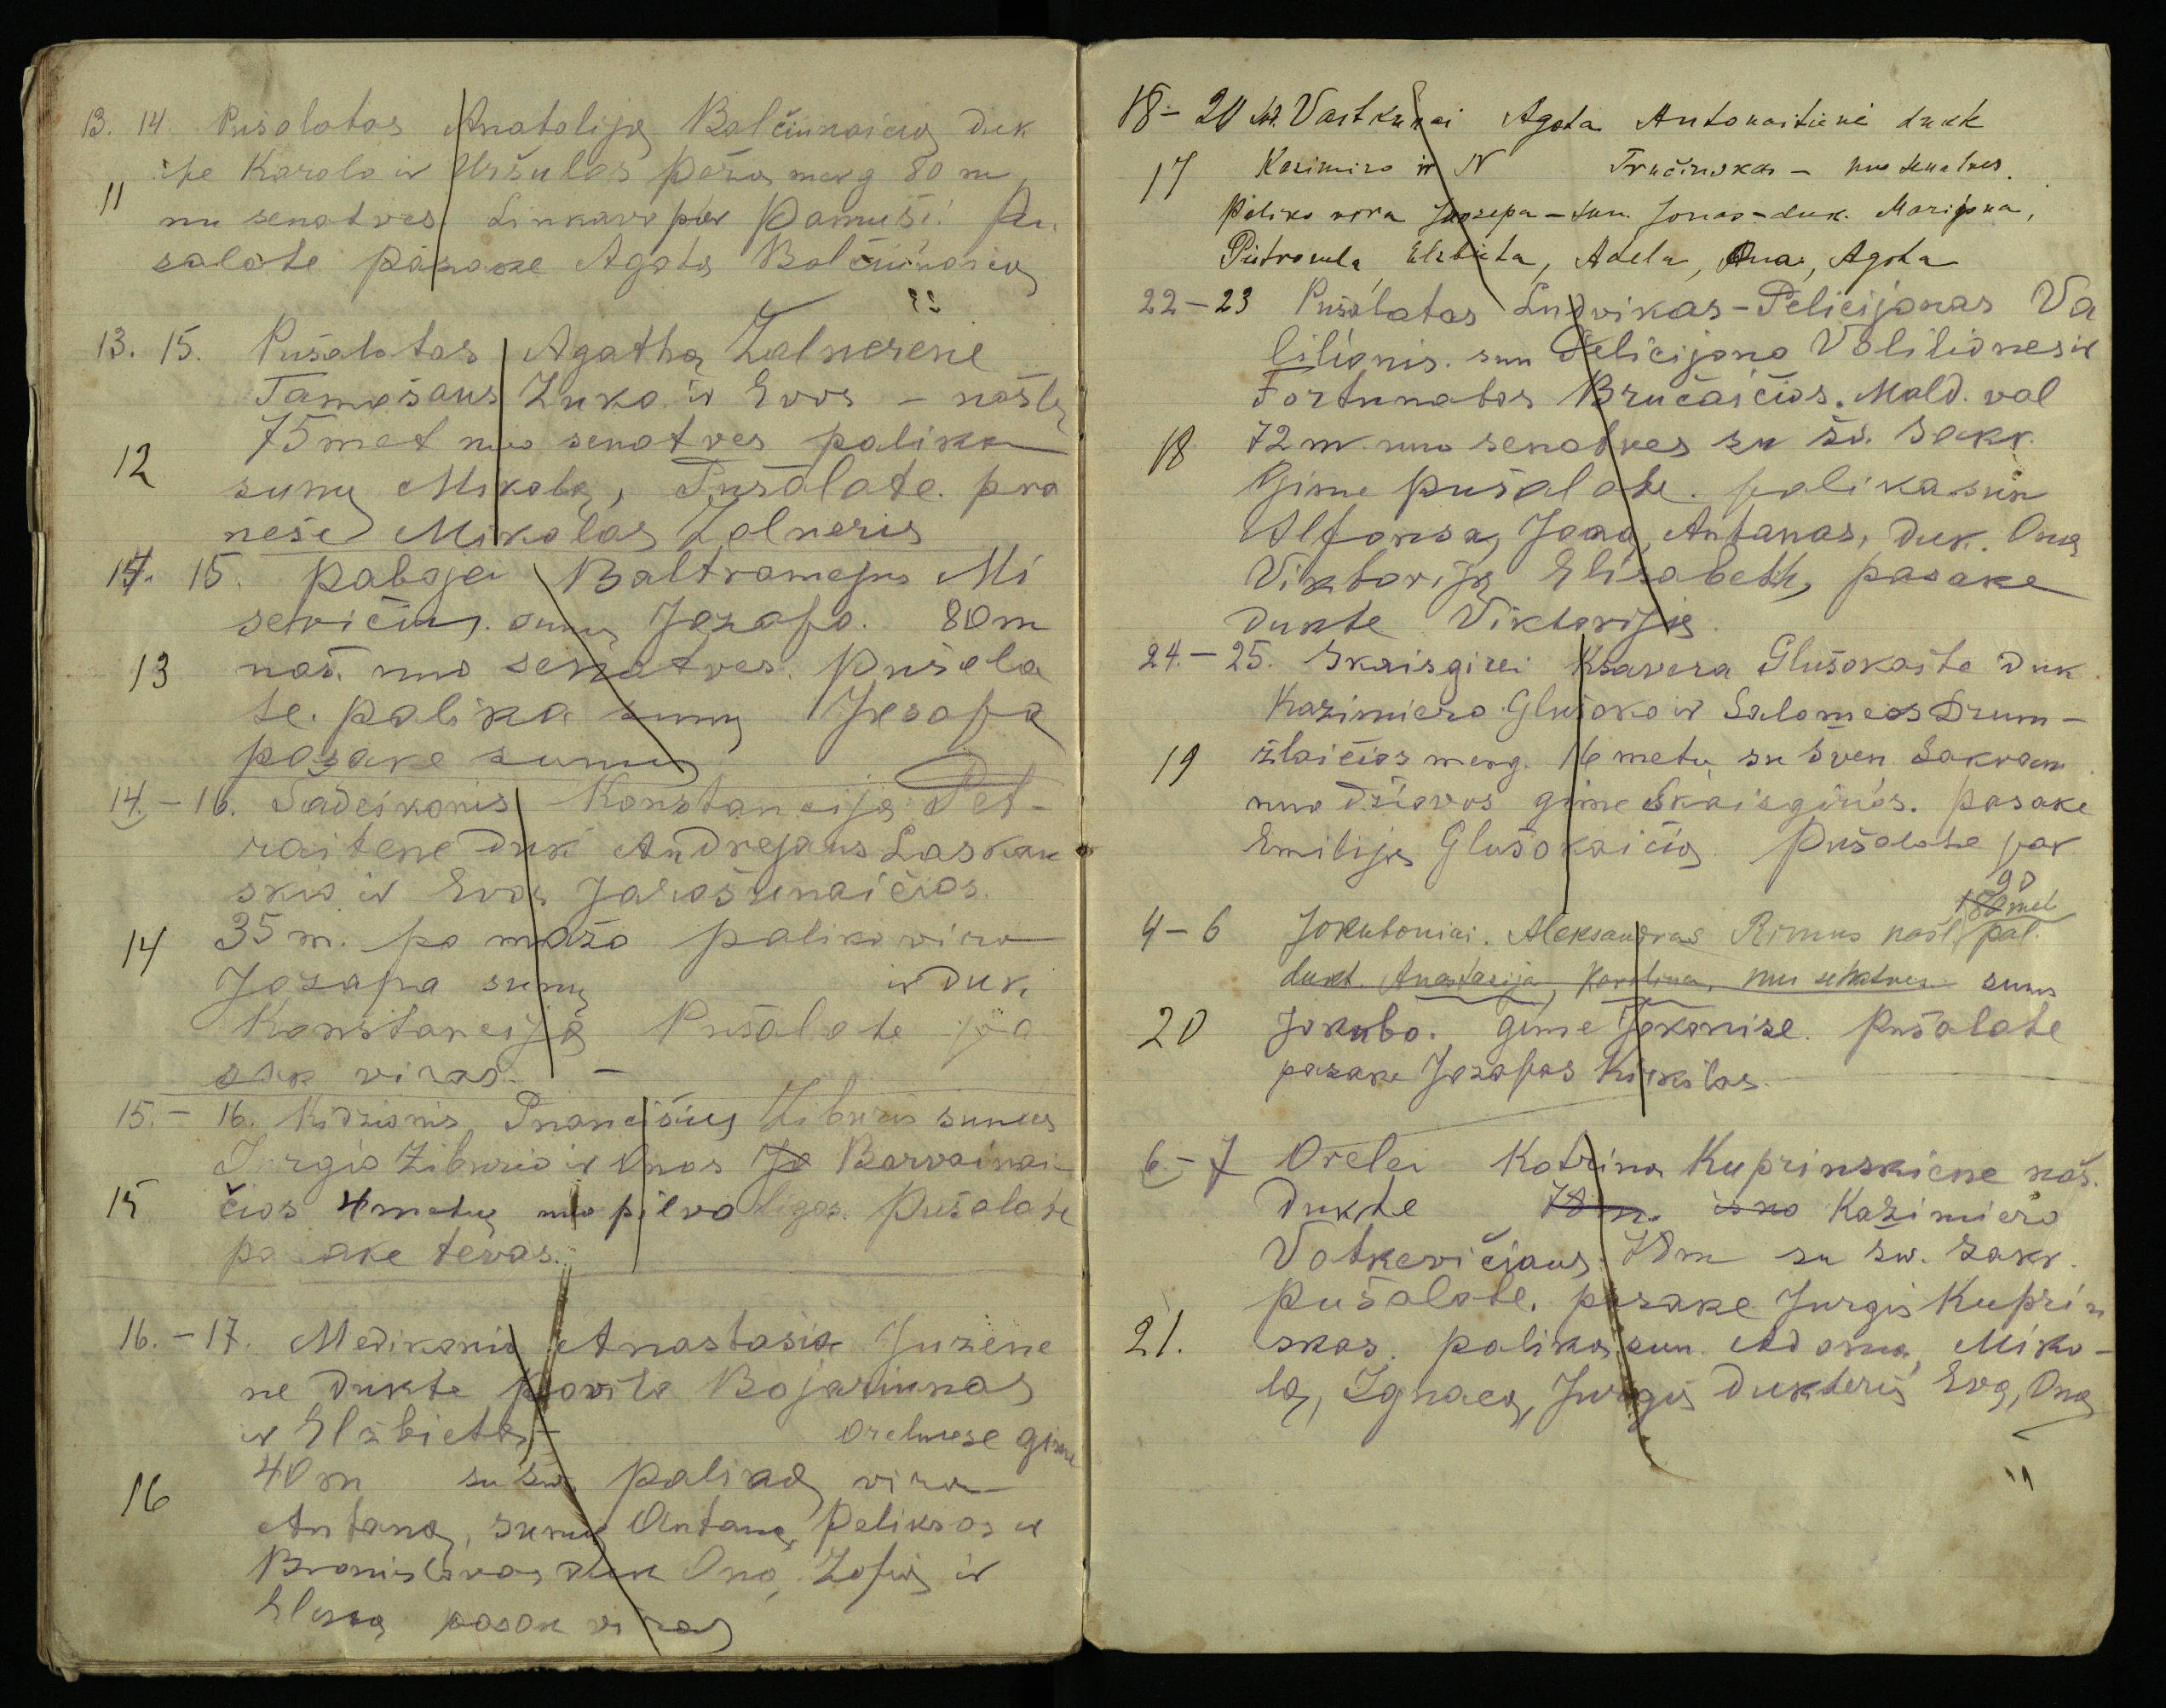 13. 14. Pušalotas Anatolija Balčiunaičia duk
te Karolo ir Uršulos merg 80 m,
11 nu senatves Linkavo par Pamuši. Pu
salote pasake Agota Balčiunaicia
13. 15. Pušalotas Agatha Zalnerene
Tamošaus Zuko ir Evos – našlę
75 met nuo senatves paliko
12 sunų Mikolą, Pušalote. pra
neše Mikolas Zalneris
14. 15. Paboja Baltramejus Mi
sevičius. sunus Jozapo. 80 m
13 naš. nuo senatves. Pušala
te. palika sunų Jozapą
pasake sunus
14. – 16. Sadeikonis Konstancija Pet-
raitene duk Andrejaus Laskau
skio ir Evos Jarošunaičios.
14 35 m. po maža paliko viro
Jozapa sunų ir duk.
Konstanciją Pušalote pa
sak viras. –
15. – 16. Kidzionis Pranciškus Ziburis sunus
Jurgio Ziburio ir Onos Jo Barvainai-
15 čios 4 metų nuo pilvo ligos. Pušalote
pasake tevas.
16. – 17. Medikonis Anastasia Juzene
ne dukte Povilo Bojariunas
ir Elzbietos – Oreluose gime
40 m su šw. Palikdą viro
16 Antaną, sunus Antaną, Peliksas ir
Bronislovas duk Ona, Zofiją ir
pasak viras
18 – 20 Vastkunai Agota Antonaitienė dukt
17 Kazimiro ir N Tručinskas – nuo senatves.
Paliko vira Juozepa – sun. Jonas – duk. Marijona,
Pietronela, Elzbieta, Adela, Ona, Agota
22 – 23 Pušalotas Ludvikas – Pelicijonas Va
lilionis. sun Felicijono Valilionesir
Fortunatos Bručaičios. Mald. val
18 72 m nuo senatves su šv. Sakr.
Gime pušalote. palika sun
Alfonsa, Joną, Antanas, duk. Oną
Viktoriją Elisabeth, pasake
dukte Viktorija.
24. – 25. Skaisgirei Ksavera Glušokaite duk
Kazimiero Glušoko ir Salomeos Drum-
19 žlaičios merg. 16 metu, su šven. Sakram
nuo džiovos gime Skaisgirios. pasake
Emilija Glušokaičia. Pušalote par
90
met
4 – 6 Jokuboniai. Aleksandras Rimus našl. pal.
dukt. Anastazija, Karolina, nuo senatves sunus
20 Jokubo. gime Jokonise. Pušalote
pasake Jozapas Kirkilas.
6 – 7 Orelei Katrina Kuprinskiene naš.
dukte 78 m. Kazimiero
Votkevičiaus. 78 m su šw. Sakr.
Pušalote. pasake Jurgis Kuprin
21. skas. paliko sun. Adoma, Miko-
lą, Ignacą, Jurgis dukteris Evą, Oną